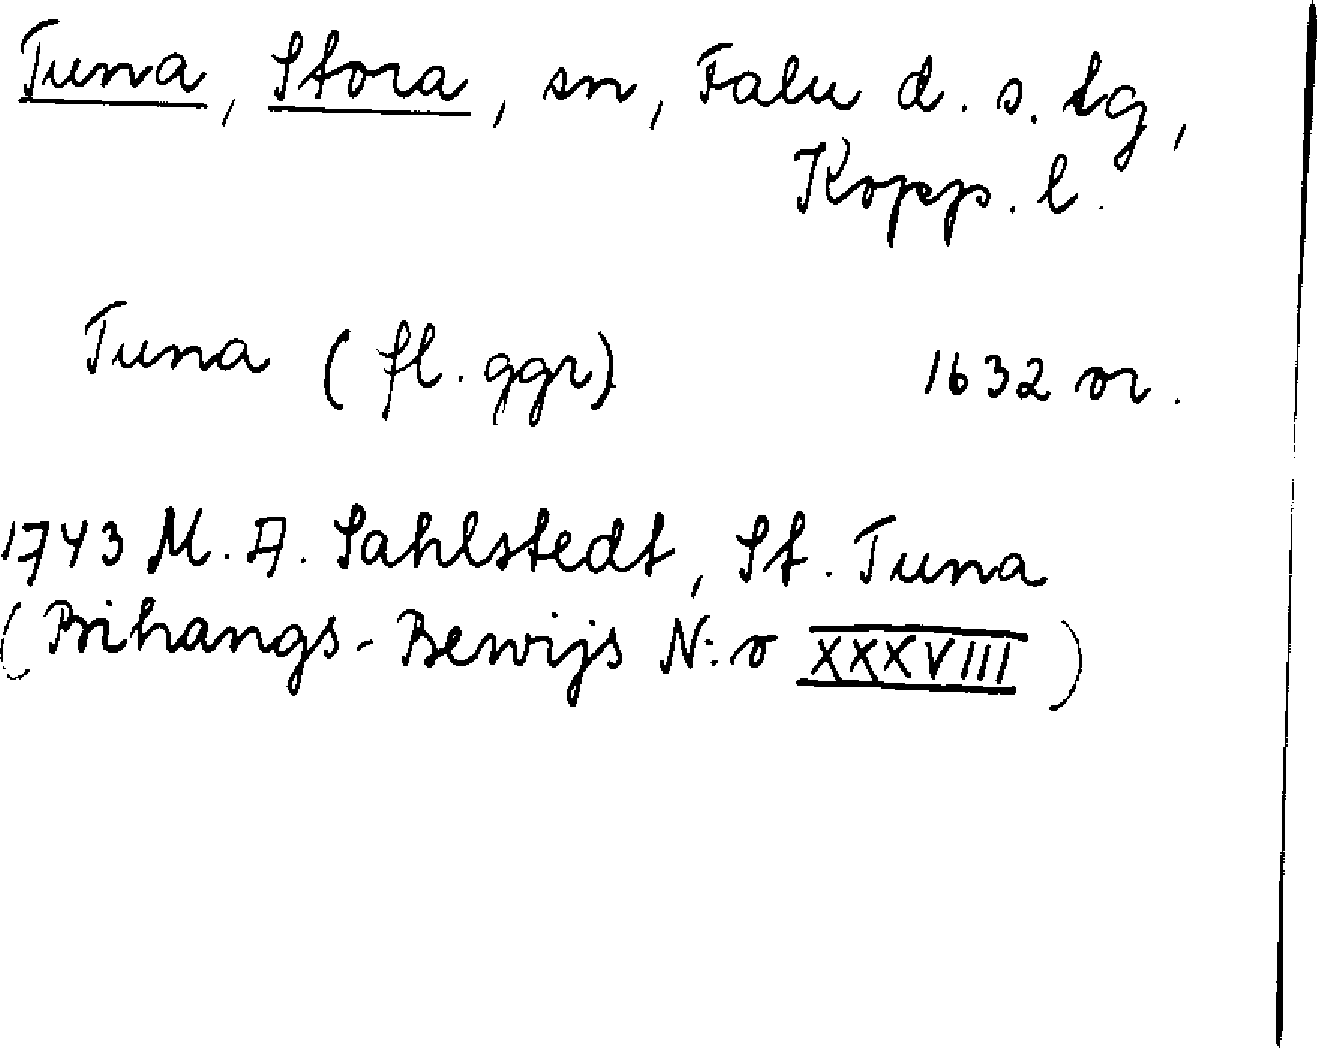 Tuna, Stora, sn, Falu d. s. tg,
Kopp. l.
Tuna (fl. ggr) 1632 or.
1743 M. A. Sahlstedt, St. Tuna
(Bihangs-Bewijs N:o XXXVIII)